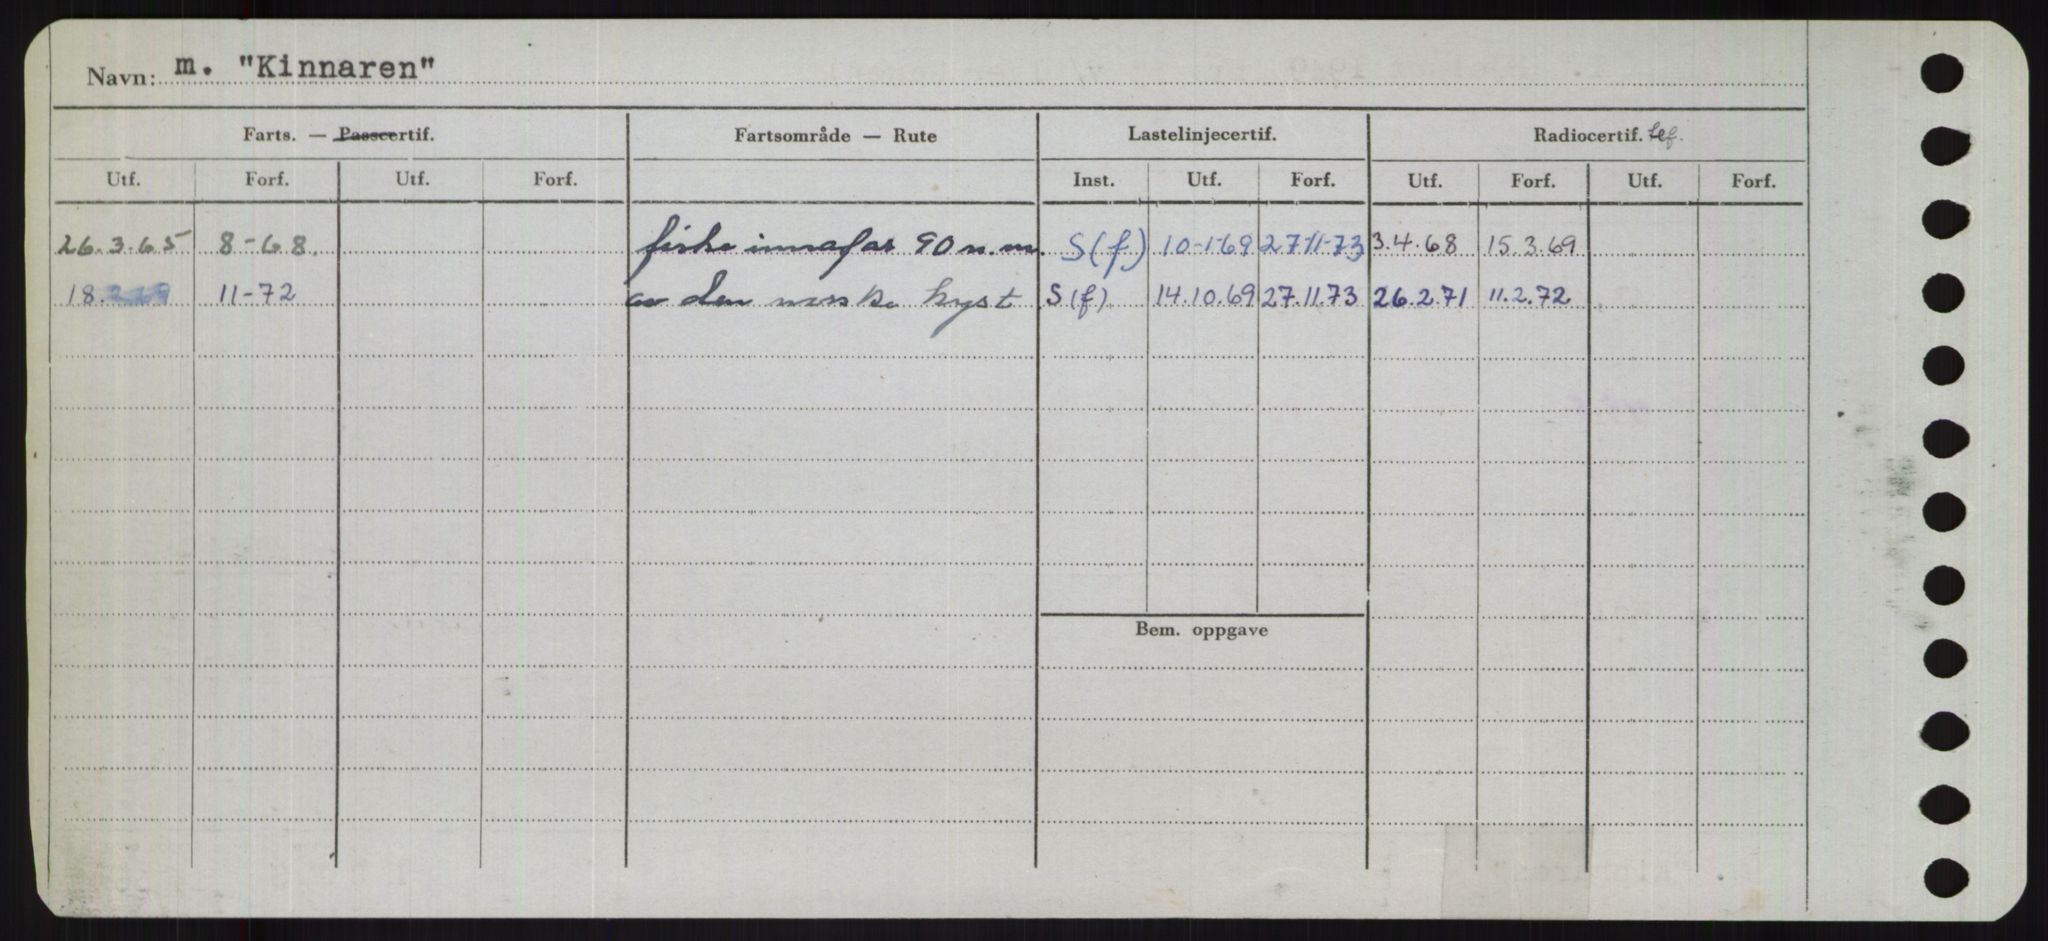 Navn: m. "Kinnaren"
Farts. — Passcertif. Fartsområde — Rute Lastelinjecertif. Radiocertif. tlf.
Utf. Forf. Utf. Forf. Inst. Utf. Forf. Utf. Forf. Utf. Forf.
26.3.65 8-68. fiske innafor 90 n.m. S(f) 10-1-69 27-11-73 3.4.68 15.3.69
18. 11-72 av den norske kyst S(f) 14.10.69 27.11.73 26.2.71 11.2.72
Bem. oppgave